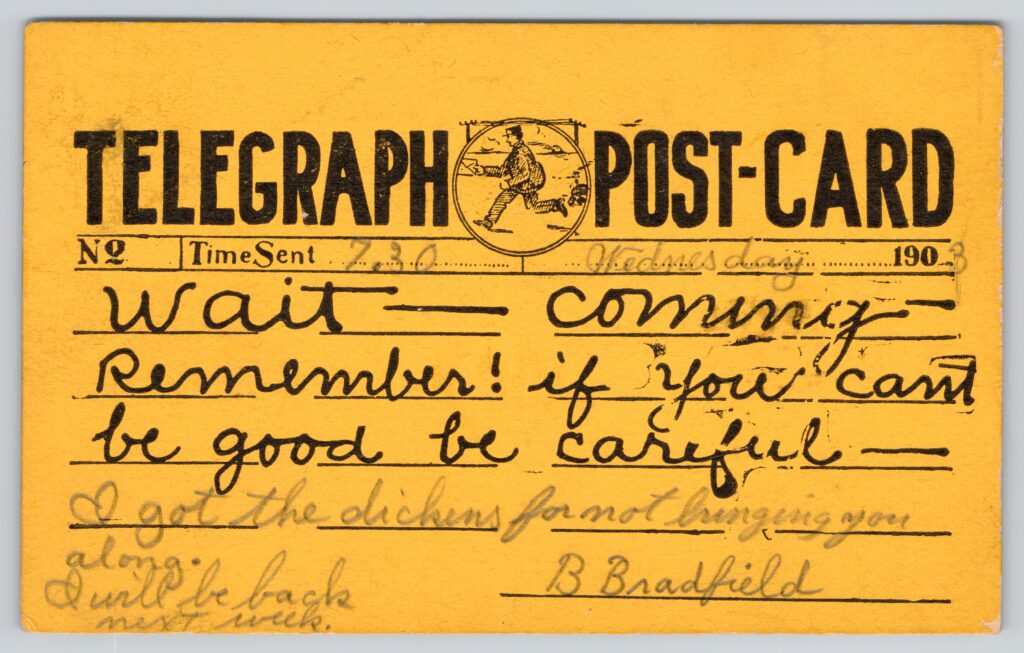 TELEGRAPH POST-CARD
No Time Sent 7.30 Wednesday 190 3
Wait — coming —
Remember! if you cant
be good be careful —
I got the dickens for not bringing you
along.
B Bradfield
I will be back
next week.